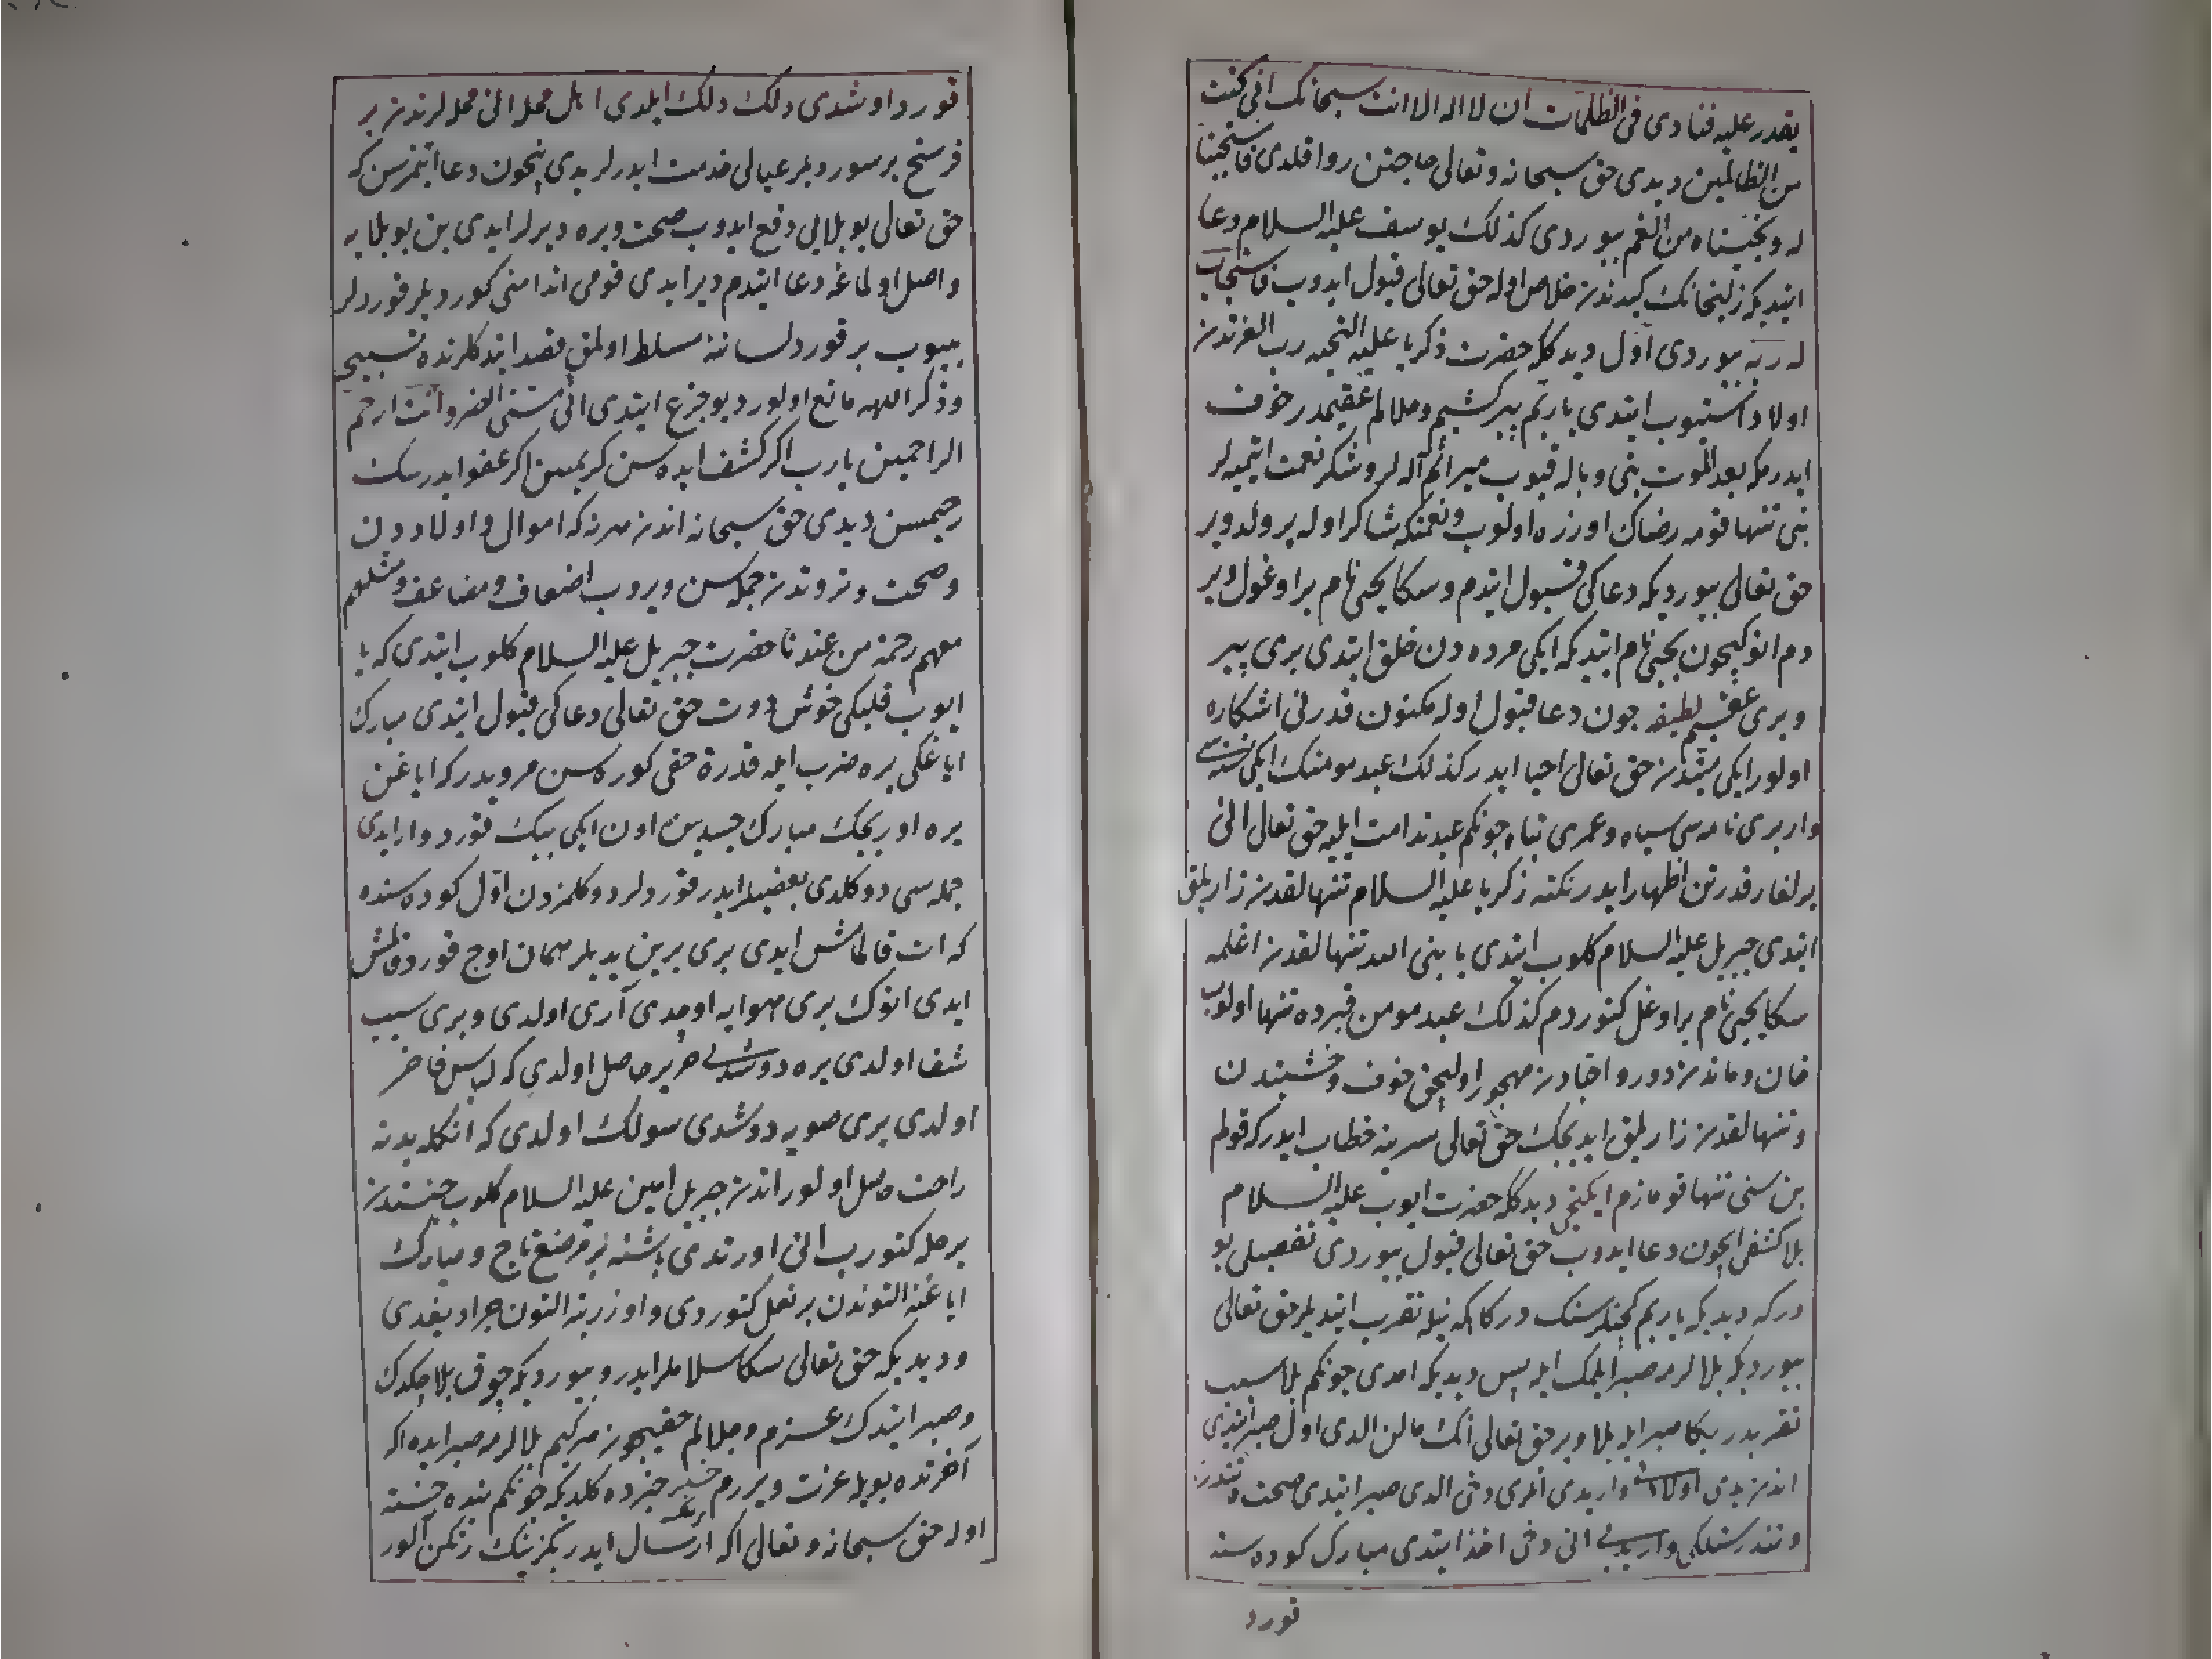 يقدر عليه فنادى فى الظلمات ان لا اله الا انت سبحانك انى كنت
من الظالمين ديدى حق سبحانه وتعالى حاجتن روا قلدى فاستجبنا
له ونجيناه من الغم بيوردى كذلك يوسف عليه السلام دعا
ايتديكه زليخانك كيدندن خلاص اوله حق تعالى قبول ايدوب فاستجاب
له ربه بيوردى اول ديدكله حضرت ذكريا عليه التحيه رب العزتدن
اولاد استيوب ايتدى ياربم پير كشيم وحلالم عقيمدر خوف
ايدرمكه بعد الموت بنى وباله قيوب ميراثم آله لر وشكر نعمت ايتميه لر
بنى تنها قومه رضاك اوزره اولوب ونعمتكه شاكر اوله بر ولد وير
حق تعالى بيورديكه دعاكى قبول ايتدم وسكا يحيى نام بر اوغول وير
دم انوكيچون يحيى نام ايتدكه ايكى مرده دن خلق ايتدى برى پير
وبرى عقيم لطيفه چون دعا قبول اوله مكنون قدرتى اشكاره
اولور ايكى ميتدن حق تعالى احيا ايدر كذلك عبد مومنك ايكى نسنه سى
وار برى نامه سى سياه وعمرى تباه چونكم عبد ندامت ايليه حق تعالى انى
يرلغار قدرتن اظهار ايدر نكته زكريا عليه السلام تنهالقدن زاريلق
ايتدى جبريل عليه السلام كلوب ايتدى يا بنى الله تنهالقدن اغلمه
سكا يحيى نام بر اوغل كتوردم كذلك عبد مومن قبرده تنها اولوب
خان وماندن دور واحبادن مهجور اوليجق خوف وخشيتدن
وتنهالقدن زاريلق ايديجك حق تعالى سرينه خطاب ايدركه قولم
بن سنى تنها قومازم ايكنجى ديدكله حضرت ايوب عليه السلام
بلا كشفى ايچون دعا ايدوب حق تعالى قبول بيوردى تفصيلى بو
دركه ديديكه ياربم كنجلر سنك دركاهكه نيله تقرب ايتديلر حق تعالى
بيورديكه بلالرمه صبر ايلمك ايله پس ديديكه امدى چونكم بلا سبب
تقربدر بكا صبر ايله بلا وير حق تعالى انك مالن الدى اول صبر ايتدى
اندن يدى اولادى واريدى انلرى دخى الدى صبر ايتدى صحت
وتندرستلكى واريدى انى دخى اخذ ايتدى مبارك كوده سنه
قورد
قورد اوشدى دلك دلك ايلدى اهل محله انى محله لرندن بر
فرسخ ير سورديلر عيالى خدمت ايدرلريدى نيچون دعا ايتمزسن كه
حق تعالى بو بلايى دفع ايدوب صحت ويره ديرلر ايدى بن بو بلايه
واصل اولماغه دعا ايتدم دير ايدى قومى اندامنى كورديلر قوردلر
ييوب بر قورد لساننه مسلط اولمق قصد ايتدكلرنده تسبيح
وذكر الله مانع اولورديو جزع ايتدى انى مسنى الضر وانت ارحم
الراحمين يارب اكر كشف ايده سن كريمسن اكر عفو ايدرسك
رحيمسن ديدى حق سبحانه اندن هر نه كه اموال واولاددن
وصحت وثروتدن جمله سن ويروب اضعاف ومضاعف ومثلهم
معهم رحمة من عندنا حضرت جبريل عليه السلام كلوب ايتدى كه يا
ايوب قلبكى خوش دوت حق تعالى دعاكى قبول ايتدى مبارك
اياغكى يره ضرب ايله قدرة حقى كوره سن مرويدر كه اياغن
يره اوريجك مبارك جسدين اون ايكى بيك قورد وار ايدى
جمله سى دوكلدى بعضيلر ايدر قوردلر دوكلمزدن اول كوده سنده
كه ات قالمامش ايدى برى برين يديلر همان اوچ قورد قالمش
ايدى انوك برى هوايه اوچدى آرى اولدى وبرى سبب
شفا اولدى يره دوشدى حرير حاصل اولدى كه لباس فاخر
اولدى برى صويه دوشدى سولك اولدى كه انكله بدنه
راحت حاصل اولور اندن جبريل امين عليه السلام كلوب جنتدن
بر حله كتورب انى اورتدى باشنه بر مرضع تاج ومبارك
اياغنه التوندن بر نعل كتوردى واوزرينه التون جراد يغدى
وديديكه حق تعالى سكا سلاملر ايدر وبيورديكه چوق بلا چكدك
وصبر ايتدك عزم وجلالم حقيچون هركيم بلالرمه صبر ايده اكر
آخرتده بويله عزت ويررم خبر خبرده كلديكه چونكم بنده خسته
اوله حق سبحانه وتعالى اكا ارسال ايدر بكزينك رنكمن آلور